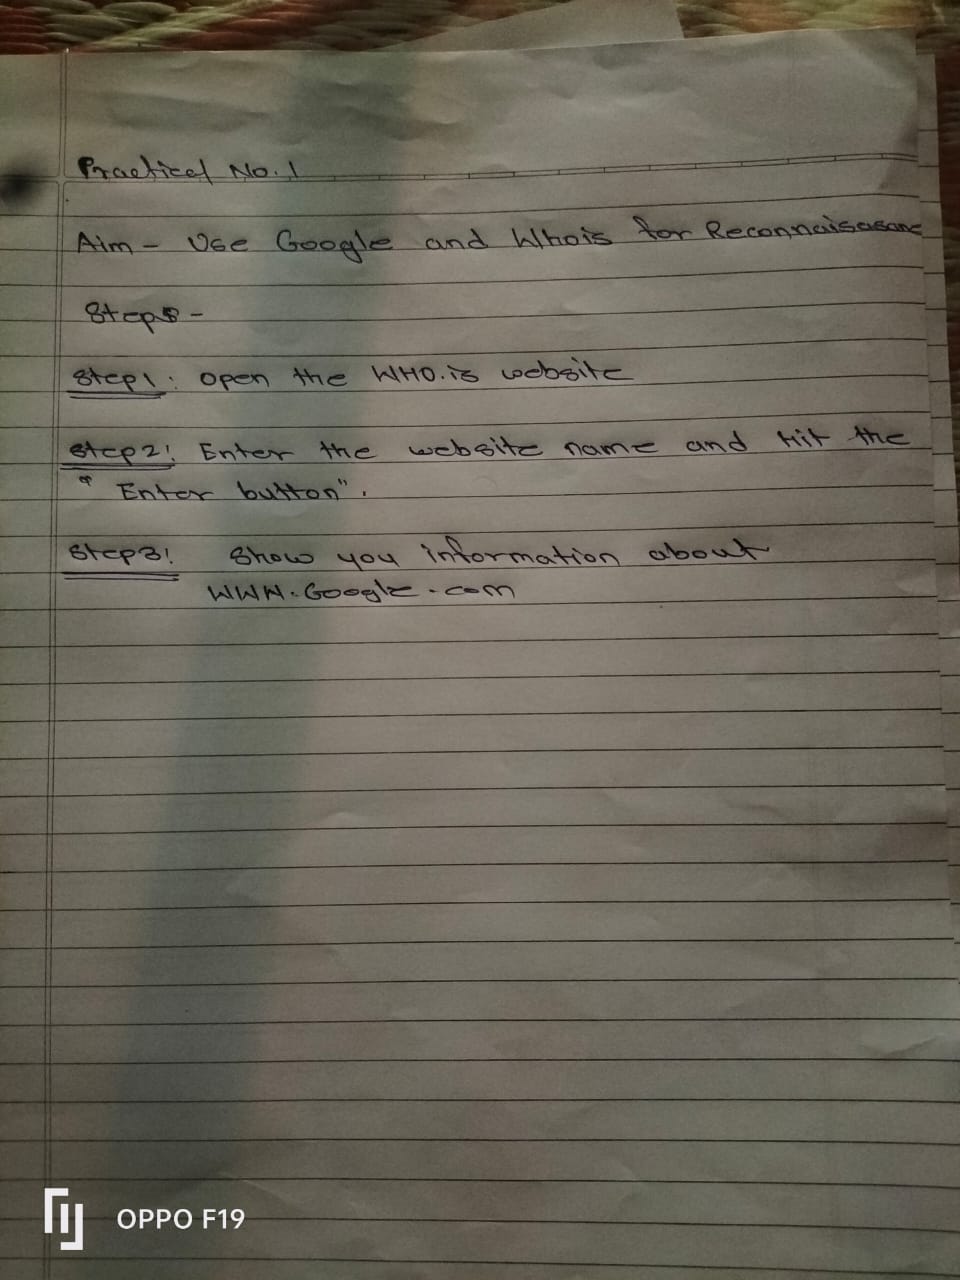 Practical No. 1
Aim - Use Google and Whois for Reconnaisasanc
Steps -
Step1: open the WHO.is website
Step2: Enter the website name and Hit the
" Enter button".
Step3: Show you information about
WWW.Google.com
OPPO F19